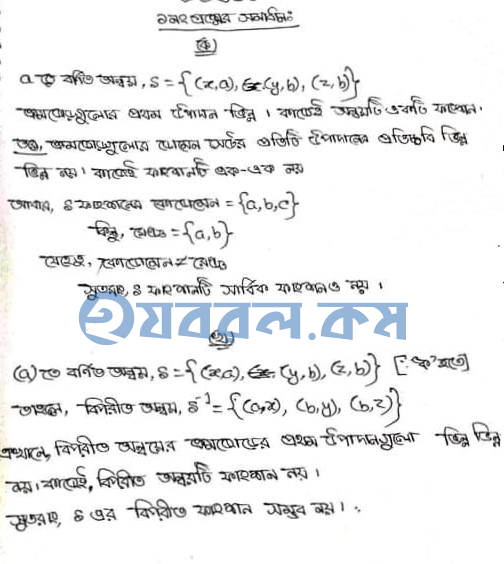 ১নং প্রশ্নের সমাধানঃ
(ক)
a তে বর্ণিত অন্বয়, S = {(x,a), (y,b), (z,b)}
ক্রমজোড়গুলোর প্রথম উপাদান ভিন্ন । কাজেই অন্বয়টি একটি ফাংশন।
ক্রমজোড়গুলোর ডোমেন সেটের প্রতিটি উপাদানের প্রতিচ্ছবি ভিন্ন
ভিন্ন নয়। কাজেই ফাংশনটি এক-এক নয়
আবার, S ফাংশনের কোডোমেন = {a,b,c}
কিন্তু, রেঞ্জ = {a,b}
যেহেতু, কোডোমেন ≠ রেঞ্জ
সুতরাং, S ফাংশনটি সার্বিক ফাংশনও নয় ।
হযবরল.কম
(খ)
(a) তে বর্ণিত অন্বয়, S = {(x,a), (y,b), (z,b)} ['ক' হতে]
তাহলে, বিপরীত অন্বয়, S⁻¹ = {(a,x), (b,y), (b,z)}
এখানে, বিপরীত অন্বয়ের ক্রমজোড়ের প্রথম উপাদানগুলো ভিন্ন ভিন্ন
নয়। কাজেই, বিপরীত অন্বয়টি ফাংশন নয় ।
সুতরাং, S এর বিপরীত ফাংশন সম্ভব নয় ।